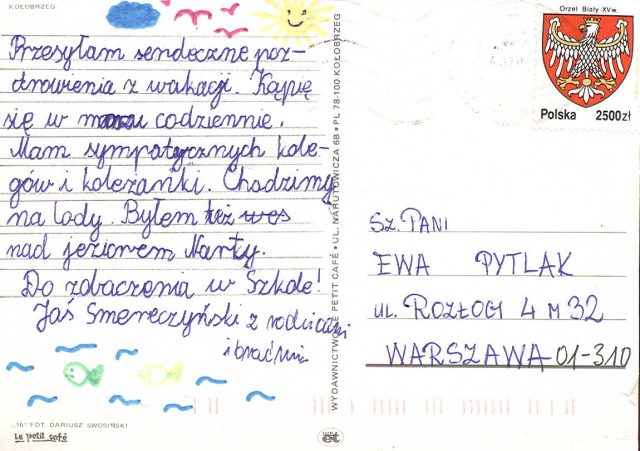 KOŁOBRZEG
Przesyłam serdeczne poz-
drowienia z wakacji. Kąpię
się w morzu codziennie.
Mam sympatycznych kole-
gów i koleżanki. Chodzimy
na lody. Byłem też
nad jeziorem Narty.
Do zobaczenia w Szkole!
Jaś Smereczyński z rodzicami
i braćmi
„16" FOT. DARIUSZ SWOSIŃSKI
Le petit café
WYDAWNICTWO LE PETIT CAFÉ • UL. NARUTOWICZA 6B • PL 78-100 KOŁOBRZEG
Orzeł Biały XVw.
Polska 2500zł
SZ. PANI
EWA PYTLAK
UL. ROZŁOGI 4 M 32
WARSZAWA 01-310